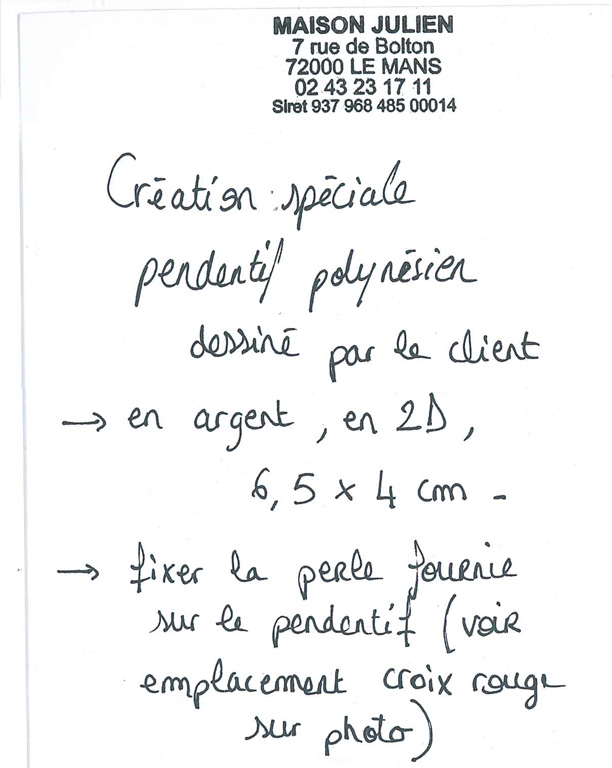 MAISON JULIEN
7 rue de Bolton
72000 LE MANS
02 43 23 17 11
Siret 937 968 485 00014
Création spéciale
pendentif polynésien
dessiné par le client
→ en argent, en 2D,
6,5 x 4 cm -
→ fixer la perle fournie
sur le pendentif (voir
emplacement croix rouge
sur photo)